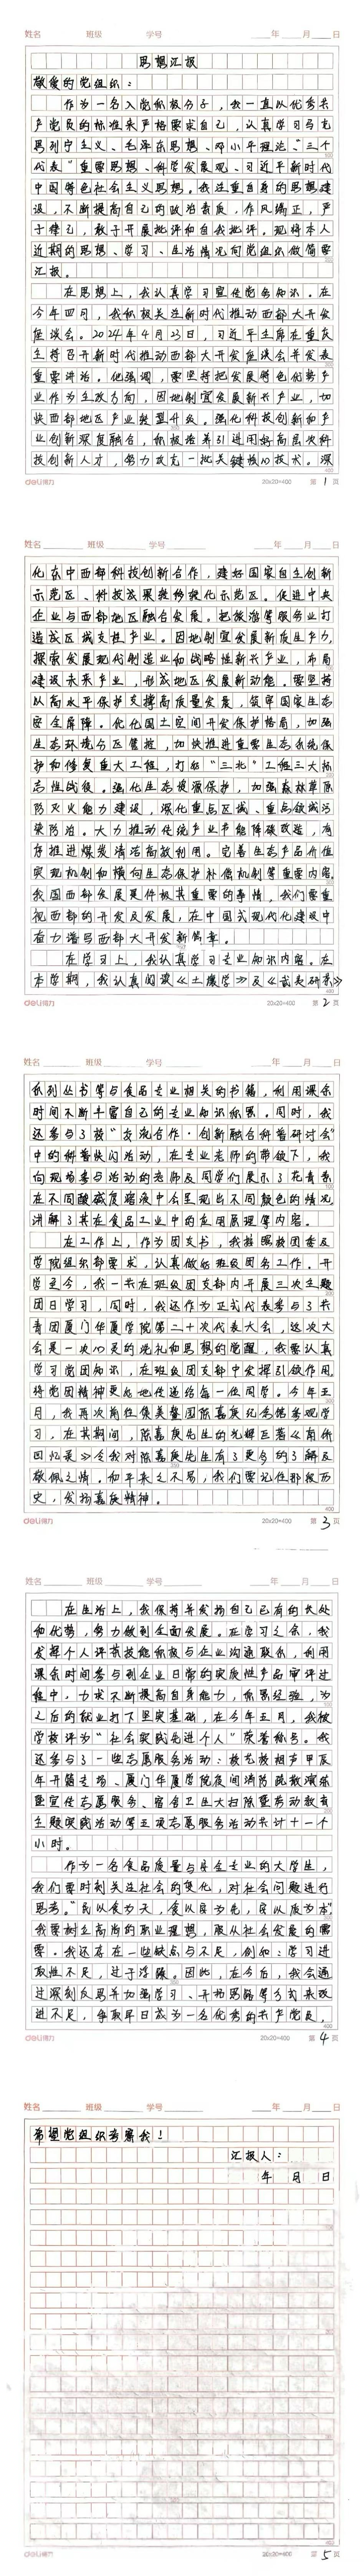 姓名 班级 学号 年 月 日
思想汇报
敬爱的党组织：
作为一名入党积极分子，我一直以优秀共
产党员的标准来严格要求自己，认真学习马克
思列宁主义、毛泽东思想、邓小平理论、“三个
代表”重要思想、科学发展观、习近平新时代
中国特色社会主义思想。我注重自身的思想建
设，不断提高自己的政治素质，作风端正，严
于律己，敢于开展批评和自我批评。现将本人
近期的思想、学习、生活情况向党组织做简要
汇报。
在思想上，我认真学习宣传党务知识。在
今年四月，我积极关注新时代推动西部大开发
座谈会。2024年4月23日，习近平主席在重庆
主持召开新时代推动西部大开发座谈会并发表
重要讲话。他强调，要坚持把发展特色优势产
业作为主攻方向，因地制宜发展新兴产业，加
快西部地区产业转型升级。强化科技创新和产
业创新深度融合，积极培养引进用好高层次科
技创新人才，努力攻克一批关键核心技术。深
deli得力 20x20=400 第 1 页
姓名 班级 学号 年 月 日
化东中西部科技创新合作，建好国家自主创新
示范区、科技成果转移转化示范区。促进中央
企业与西部地区融合发展。把旅游等服务业打
造成区域支柱产业。因地制宜发展新质生产力，
探索发展现代制造业和战略性新兴产业，布局
建设未来产业，形成地区发展新动能。要坚持
以高水平保护支撑高质量发展，筑牢国家生态
安全屏障。优化国土空间开发保护格局，加强
生态环境分区管控，加快推进重要生态系统保
护和修复重大工程，打好“三北”工程三大标
志性战役。强化生态资源保护，加强森林草原
防灭火能力建设，深化重点区域、重点领域污
染防治。大力推动传统产业节能降碳改造，有
序推进煤炭清洁高效利用。完善生态产品价值
实现机制和横向生态保护补偿机制等重要内容。
我国西部发展是件极其重要的事情，我们要重
视西部的开发及发展，在中国式现代化建设中
奋力谱写西部大开发新篇章。
在学习上，我认真学习专业知识内容。在
本学期，我认真阅读《土壤学》及《武夷研茶》
deli得力 20x20=400 第 2 页
姓名 班级 学号 年 月 日
系列丛书等与食品专业相关的书籍，利用课余
时间不断丰富自己的专业知识积累。同时，我
还参与了被“交流合作·创新融合科普研讨会”
中的科普快闪活动，在专业老师的带领下，我
向现场参与活动的老师及同学们展示了花青素
在不同酸碱度溶液中会呈现出不同颜色的情况，
讲解了其在食品工业中的应用原理等内容。
在工作上，作为团支书，我按照校团委及
学院组织部要求，认真做好班级团务工作。开
学至今，我一共在班级团支部内开展三次主题
团日学习，同时，我还作为正式代表参与了共
青团厦门华厦学院第二十次代表大会，这次大
会是一次心灵的洗礼和思想的觉醒，我要认真
学习党团知识，在班级团支部中发挥引领作用，
将党团精神更好地传递给每一位同学。今年五
月，我再次前往集美鳌园陈嘉庚纪念馆参观学
习，在其期间，陈嘉庚先生的光辉巨著《南侨
回忆录》令我对陈嘉庚先生有了更多的了解及
敬佩之情。和平来之不易，我们要记住那段历
史，发扬嘉庚精神。
deli得力 20x20=400 第 3 页
姓名 班级 学号 年 月 日
在生活上，我保持并发扬自己已有的长处
和优势，努力做到全面发展。在学习之余，我
发挥个人评茶技能积极与企业沟通联系，利用
课余时间参与到企业日常的实质性产品审评过
程中，力求不断提高自身能力，积累经验，为
之后的就业打下坚实基础，在今年五月，我被
学校评为“社会实践先进个人”荣誉称号。我
还参与了一些志愿服务活动：校龙校相声甲辰
年开箱专场、厦门华厦学院夜间消防疏散演练
暨宣传志愿服务、宿舍卫生大扫除暨劳动教育
主题实践活动等五项志愿服务活动共计十一个
小时。
作为一名食品质量与安全专业的大学生，
我们要时刻关注社会的变化，对社会问题进行
思考。“民以食为天，食以安为先，安以质为本”
我要树立高尚的职业理想，服从社会发展的需
要。我还存在一些缺点与不足，例如：学习进
取性不足，过于浮躁。因此，在今后，我会通
过深刻反思并加强学习、开拓思路等方式来改
进不足，争取早日成为一名优秀的共产党员，
deli得力 20x20=400 第 4 页
姓名 班级 学号 年 月 日
希望党组织考察我！
汇报人：
年 月 日
deli得力 20x20=400 第 5 页